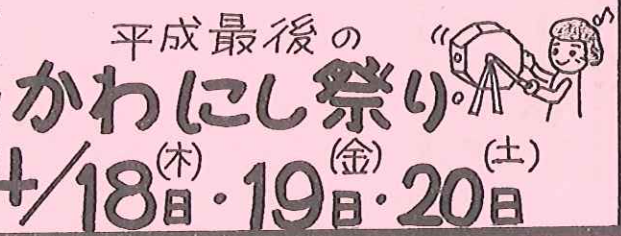 平成最後の
かわにし祭り
4/18日(木)・19日(金)・20日(土)